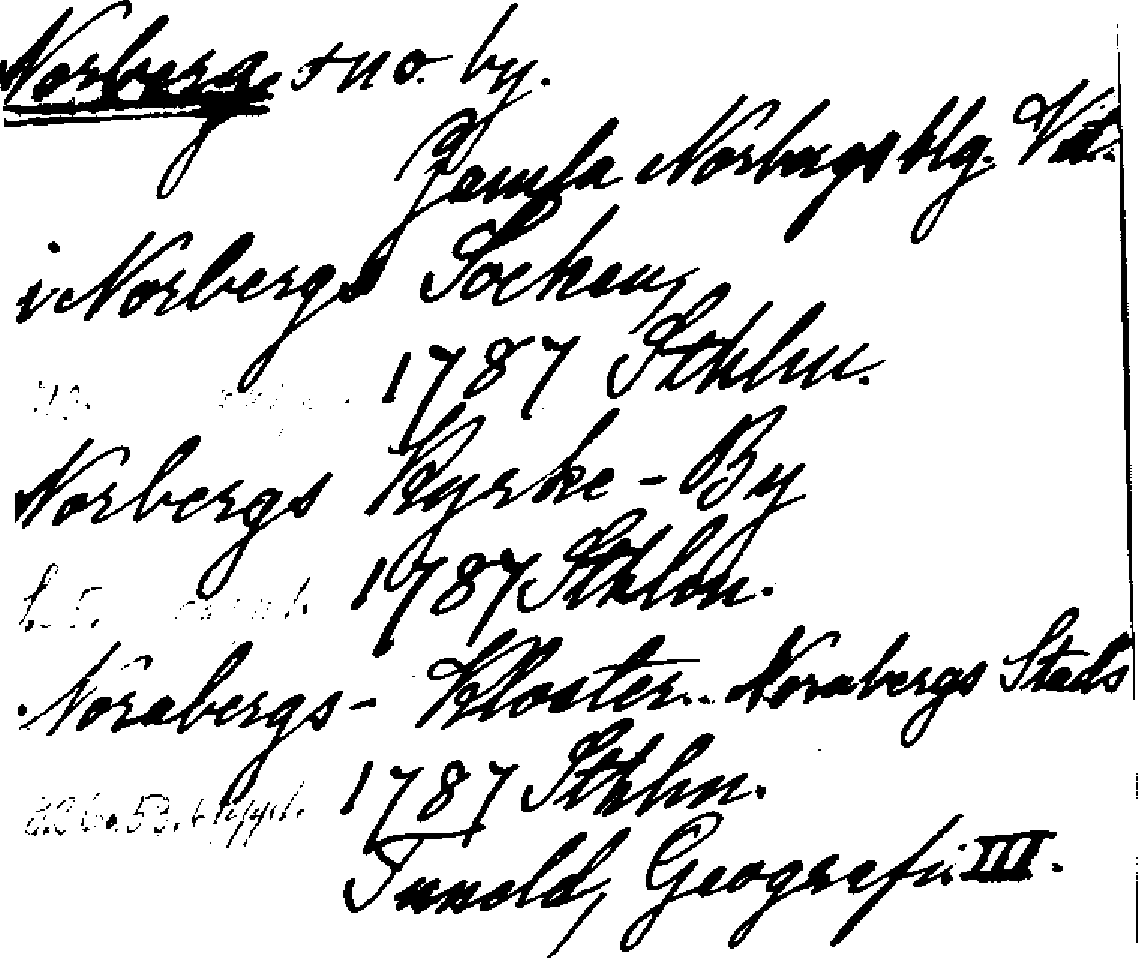 Norberg sn o. by.
Gamla Norbergs blg. Vstm.
i Norbergs Socken,
1787 Sthlm.
Norbergs Kyrke-By
1787 Sthlm.
Norabergs- Kloster. Norabergs Stads
1787 Sthlm.
Tuneld, Geografi III.